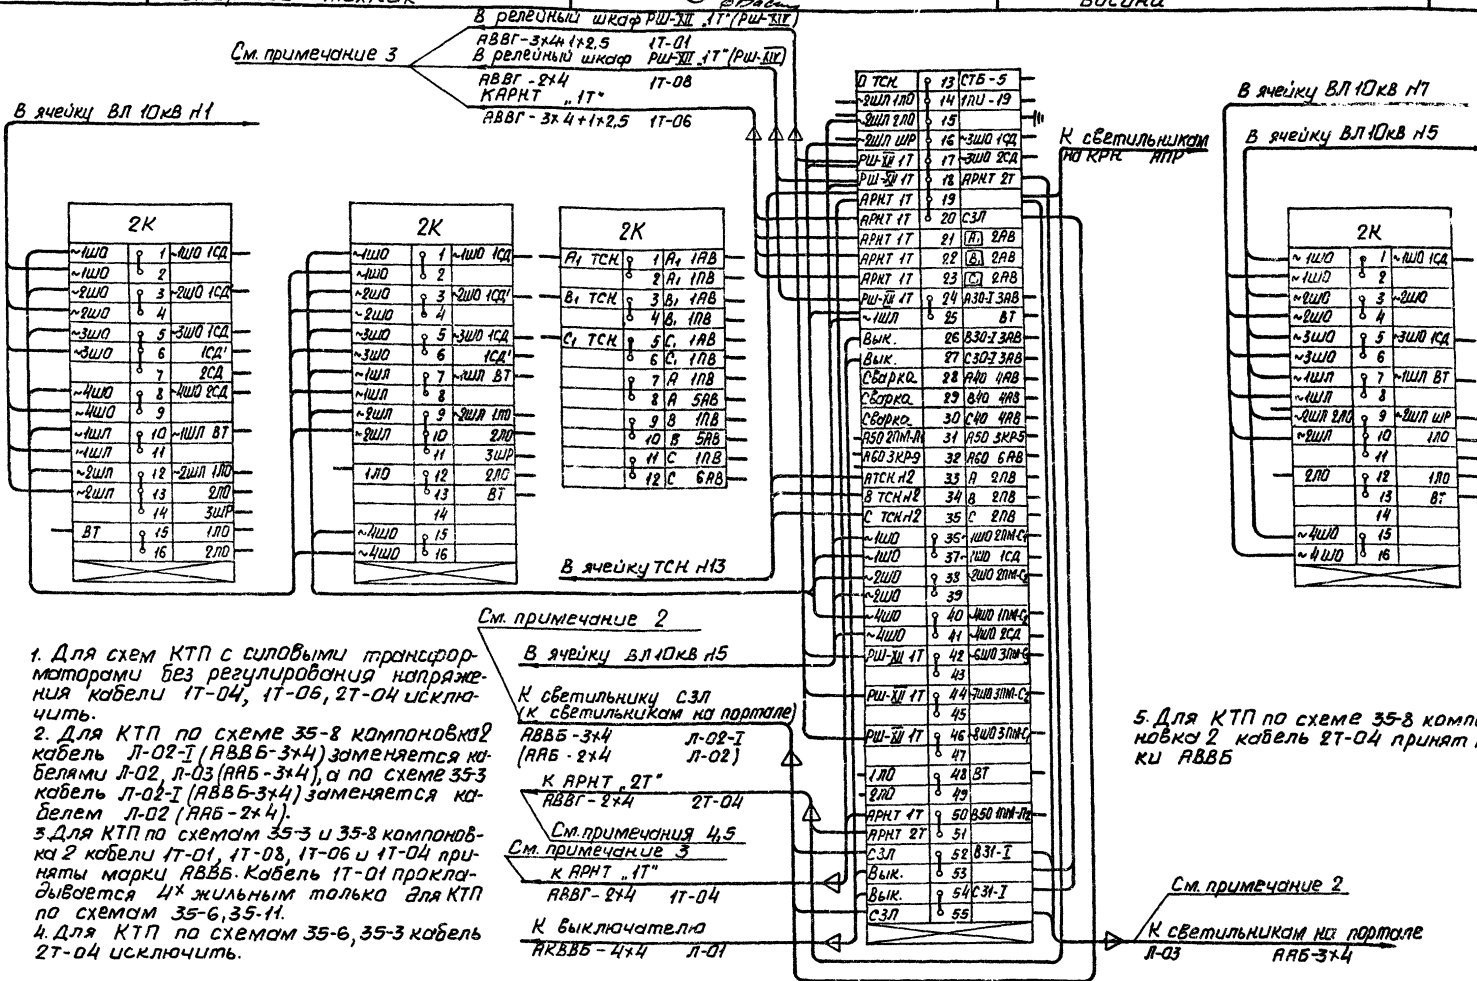 В релейный шкаф РШ-XII „1Т" (РШ-XIV)
АВВГ-3х4+1х2,5 1Т-01
См. примечание 3
В релейный шкаф РШ-XII „1Т" (РШ-XIV)
АВВГ-2х4 1Т-08
К АРНТ „1Т"
АВВГ-3х4+1х2,5 1Т-06
В ячейку ВЛ 10кВ н1
К светильникам
на КРН АПР
В ячейку ВЛ 10кВ н7
В ячейку ВЛ 10кВ н5
2К
~1ШО 1 ~1ШО 1СД
~1ШО 2
~2ШО 3 ~2ШО 1СД
~2ШО 4
~3ШО 5 ~3ШО 1СД
~3ШО 6 1СД'
7 2СД
~4ШО 8 ~4ШО 2СД
~4ШО 9
~1ШП 10 ~1ШП ВТ
~1ШП 11
~2ШП 12 ~2ШП 1ЛО
~2ШП 13 2ЛО
14 3ШР
ВТ 15 1ЛО
16 2ЛО
2К
~1ШО 1 ~1ШО 1СД
~1ШО 2
~2ШО 3 ~2ШО 1СД'
~2ШО 4
~3ШО 5 ~3ШО 1СД
~3ШО 6 1СД'
~1ШП 7 ~1ШП ВТ
~1ШП 8
~2ШП 9 ~2ШП 1ЛО
~2ШП 10 2ЛО
11 3ШР
1ЛО 12 2ЛО
13 ВТ
14
~4ШО 15
~4ШО 16
2К
А₁ ТСН 1 А₁ 1АВ
2 А₁ 1ПВ
В₁ ТСН 3 В₁ 1АВ
4 В₁ 1ПВ
С₁ ТСН 5 С₁ 1АВ
6 С₁ 1ПВ
7 А 1ПВ
8 А 5АВ
9 В 1ПВ
10 В 5АВ
11 С 1ПВ
12 С 6АВ
О ТСН 13 СТБ-5
~2ШП 1ЛО 14 1ПИ-19
~2ШП 2ЛО 15
~2ШП ШР 16 ~3ШО 1СД
РШ-XII 1Т 17 ~3ШО 2СД
РШ-XII 1Т 18 АРНТ 2Т
АРНТ 1Т 19
АРНТ 1Т 20 СЗЛ
АРНТ 1Т 21 А₁ 2АВ
АРНТ 1Т 22 В₁ 2АВ
АРНТ 1Т 23 С₁ 2АВ
РШ-XII 1Т 24 А30-I 3АВ
~1ШП 25 ВТ
Вык. 26 В30-I 3АВ
Вык. 27 С30-I 3АВ
Сварка 28 А40 4АВ
Сварка 29 В40 4АВ
Сварка 30 С40 4АВ
31 А50 3КР-5
А60 3КР-9 32 А60 6АВ
А ТСН н2 33 А 2ПВ
В ТСН н2 34 В 2ПВ
С ТСН н2 35 С 2ПВ
~1ШО 36 ~1ШО 2ПМ-С₁
~1ШО 37 ~1ШО 1СД
~2ШО 38 ~2ШО 2ПМ-С₂
~2ШО 39
~4ШО 40 ~4ШО 1ПМ-С₂
~4ШО 41 ~4ШО 2СД
РШ-XII 1Т 42
43
РШ-XII 1Т 44
45
РШ-XII 1Т 46
47
1ЛО 48 ВТ
2ЛО 49
АРНТ 1Т 50
АРНТ 2Т 51
СЗЛ 52 В31-I
Вык. 53
Вык. 54 С31-I
СЗЛ 55
2К
~1ШО 1 ~1ШО 1СД
~1ШО 2
~2ШО 3 ~2ШО
~2ШО 4
~3ШО 5 ~3ШО 1СД
~3ШО 6
~1ШП 7 ~1ШП ВТ
~1ШП 8
~2ШП 2ЛО 9 ~2ШП ШР
~2ШП 10 1ЛО
11
2ЛО 12 1ЛО
13 ВТ
14
~4ШО 15
~4ШО 16
В ячейку ТСН н13
См. примечание 2
В ячейку ВЛ 10кВ н5
К светильнику СЗЛ
(к светильникам на портале)
АВВБ-3х4 Л-02-I
(ААБ-2х4 Л-02)
К АРНТ „2Т"
АВВГ-2х4 2Т-04
См. примечания 4,5
См. примечание 3
К АРНТ „1Т"
АВВГ-2х4 1Т-04
К выключателю
АКВВБ-4х4 Л-01
См. примечание 2
К светильникам на портале
Л-03 ААБ-3х4
1. Для схем КТП с силовыми трансфор-
маторами без регулирования напряже-
ния кабели 1Т-04, 1Т-06, 2Т-04 исклю-
чить.
2. Для КТП по схеме 35-8 компоновка 2
кабель Л-02-I (АВВБ-3х4) заменяется ка-
белями Л-02, Л-03 (ААБ-3х4), а по схеме 35-3
кабель Л-02-I (АВВБ-3х4) заменяется ка-
белем Л-02 (ААБ-2х4).
3. Для КТП по схемам 35-3 и 35-8 компонов-
ка 2 кабели 1Т-01, 1Т-08, 1Т-06 и 1Т-04 при-
няты марки АВВБ. Кабель 1Т-01 прокла-
дывается 4х жильным только для КТП
по схемам 35-6, 35-11.
4. Для КТП по схемам 35-6, 35-3 кабель
2Т-04 исключить.
5. Для КТП по схеме 35-8 компо
новка 2 кабель 2Т-04 принят
ки АВВБ